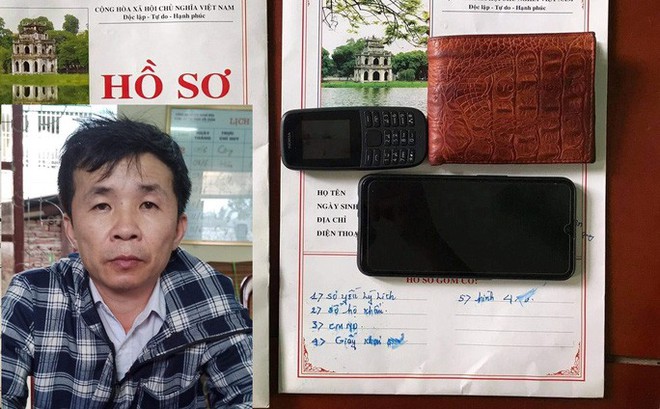 CỘNG HÒA XÃ HỘI CHỦ NGHĨA VIỆT NAM
Độc lập - Tự do - Hạnh phúc
HỒ SƠ
LỊCH
HỌ TÊN
NGÀY SINH
ĐỊA CHỈ
ĐIỆN THOẠI
HỒ SƠ GỒM CÓ:
1> Sơ yếu lý lịch
2> Sổ hộ khẩu
3> CMND
4> Giấy khai
5> hình 4